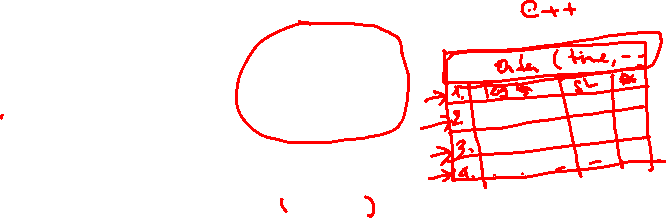 C++
Order (time, --
1. SL
2.
3.
4. . . - -
( )